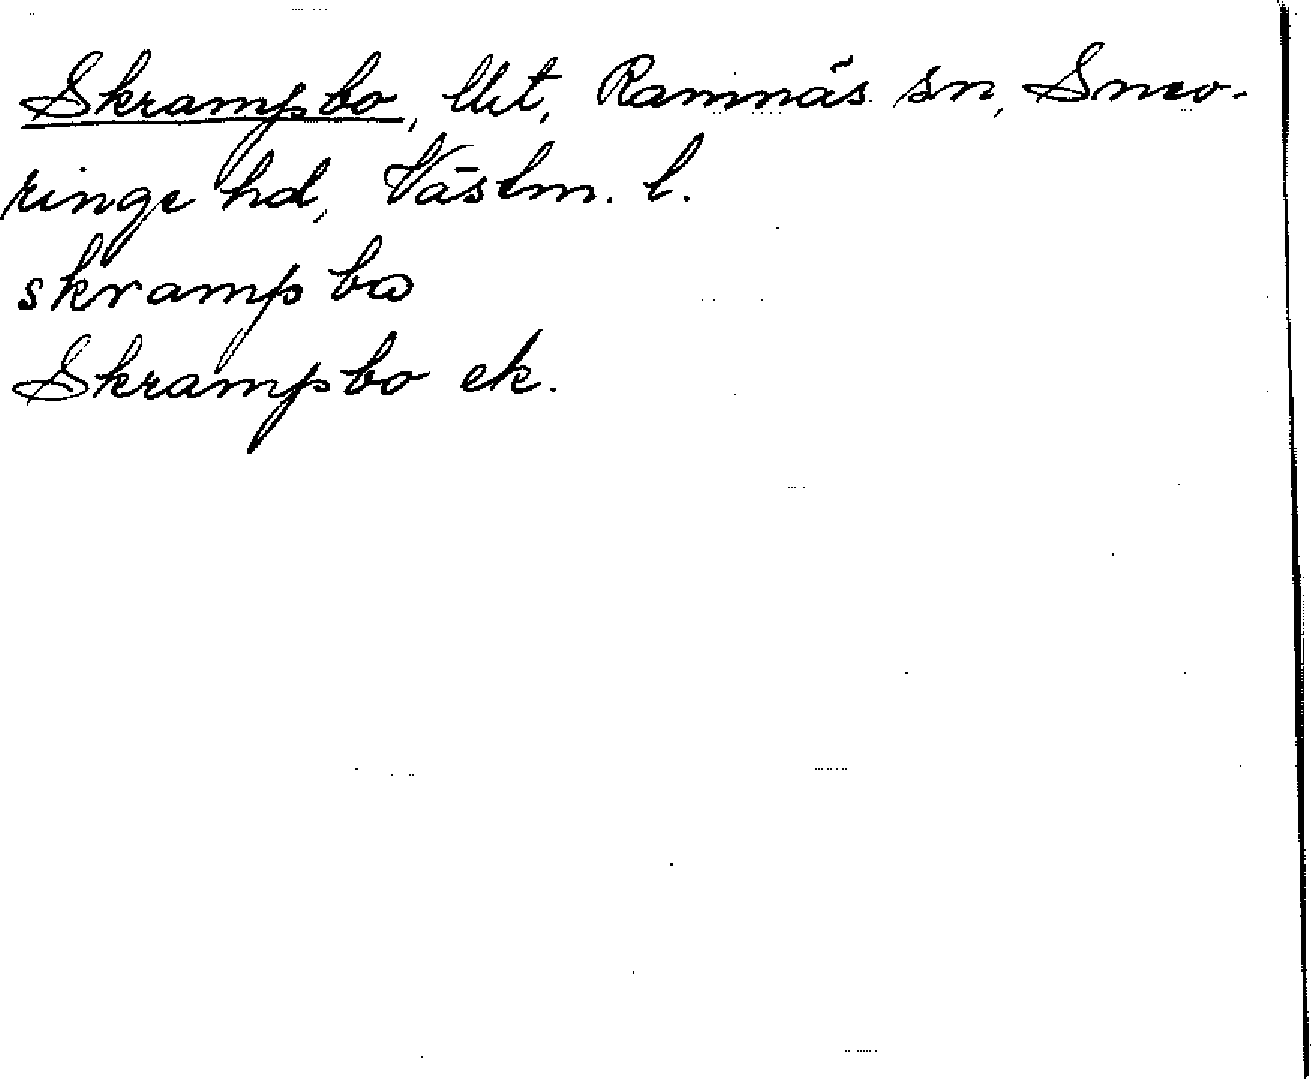 Skrampbo, lht, Ramnäs sn, Snev-
ringe hd, Västm. l.
skrampbω
Skrampbo ek.